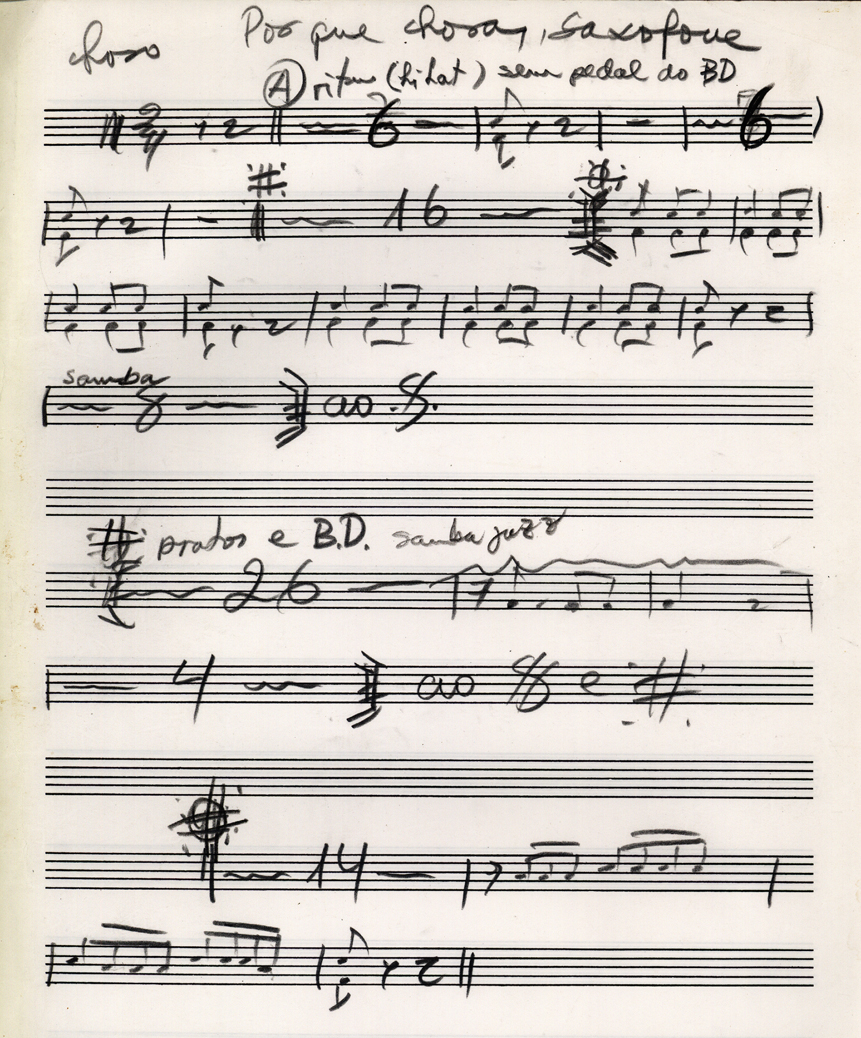 choro Por que choras, Saxofone
A ritmo (hihat) sem pedal do BD
2/4 6 6
16
samba
8 ao
pratos e B.D. samba jazz
26
4 ao e
14